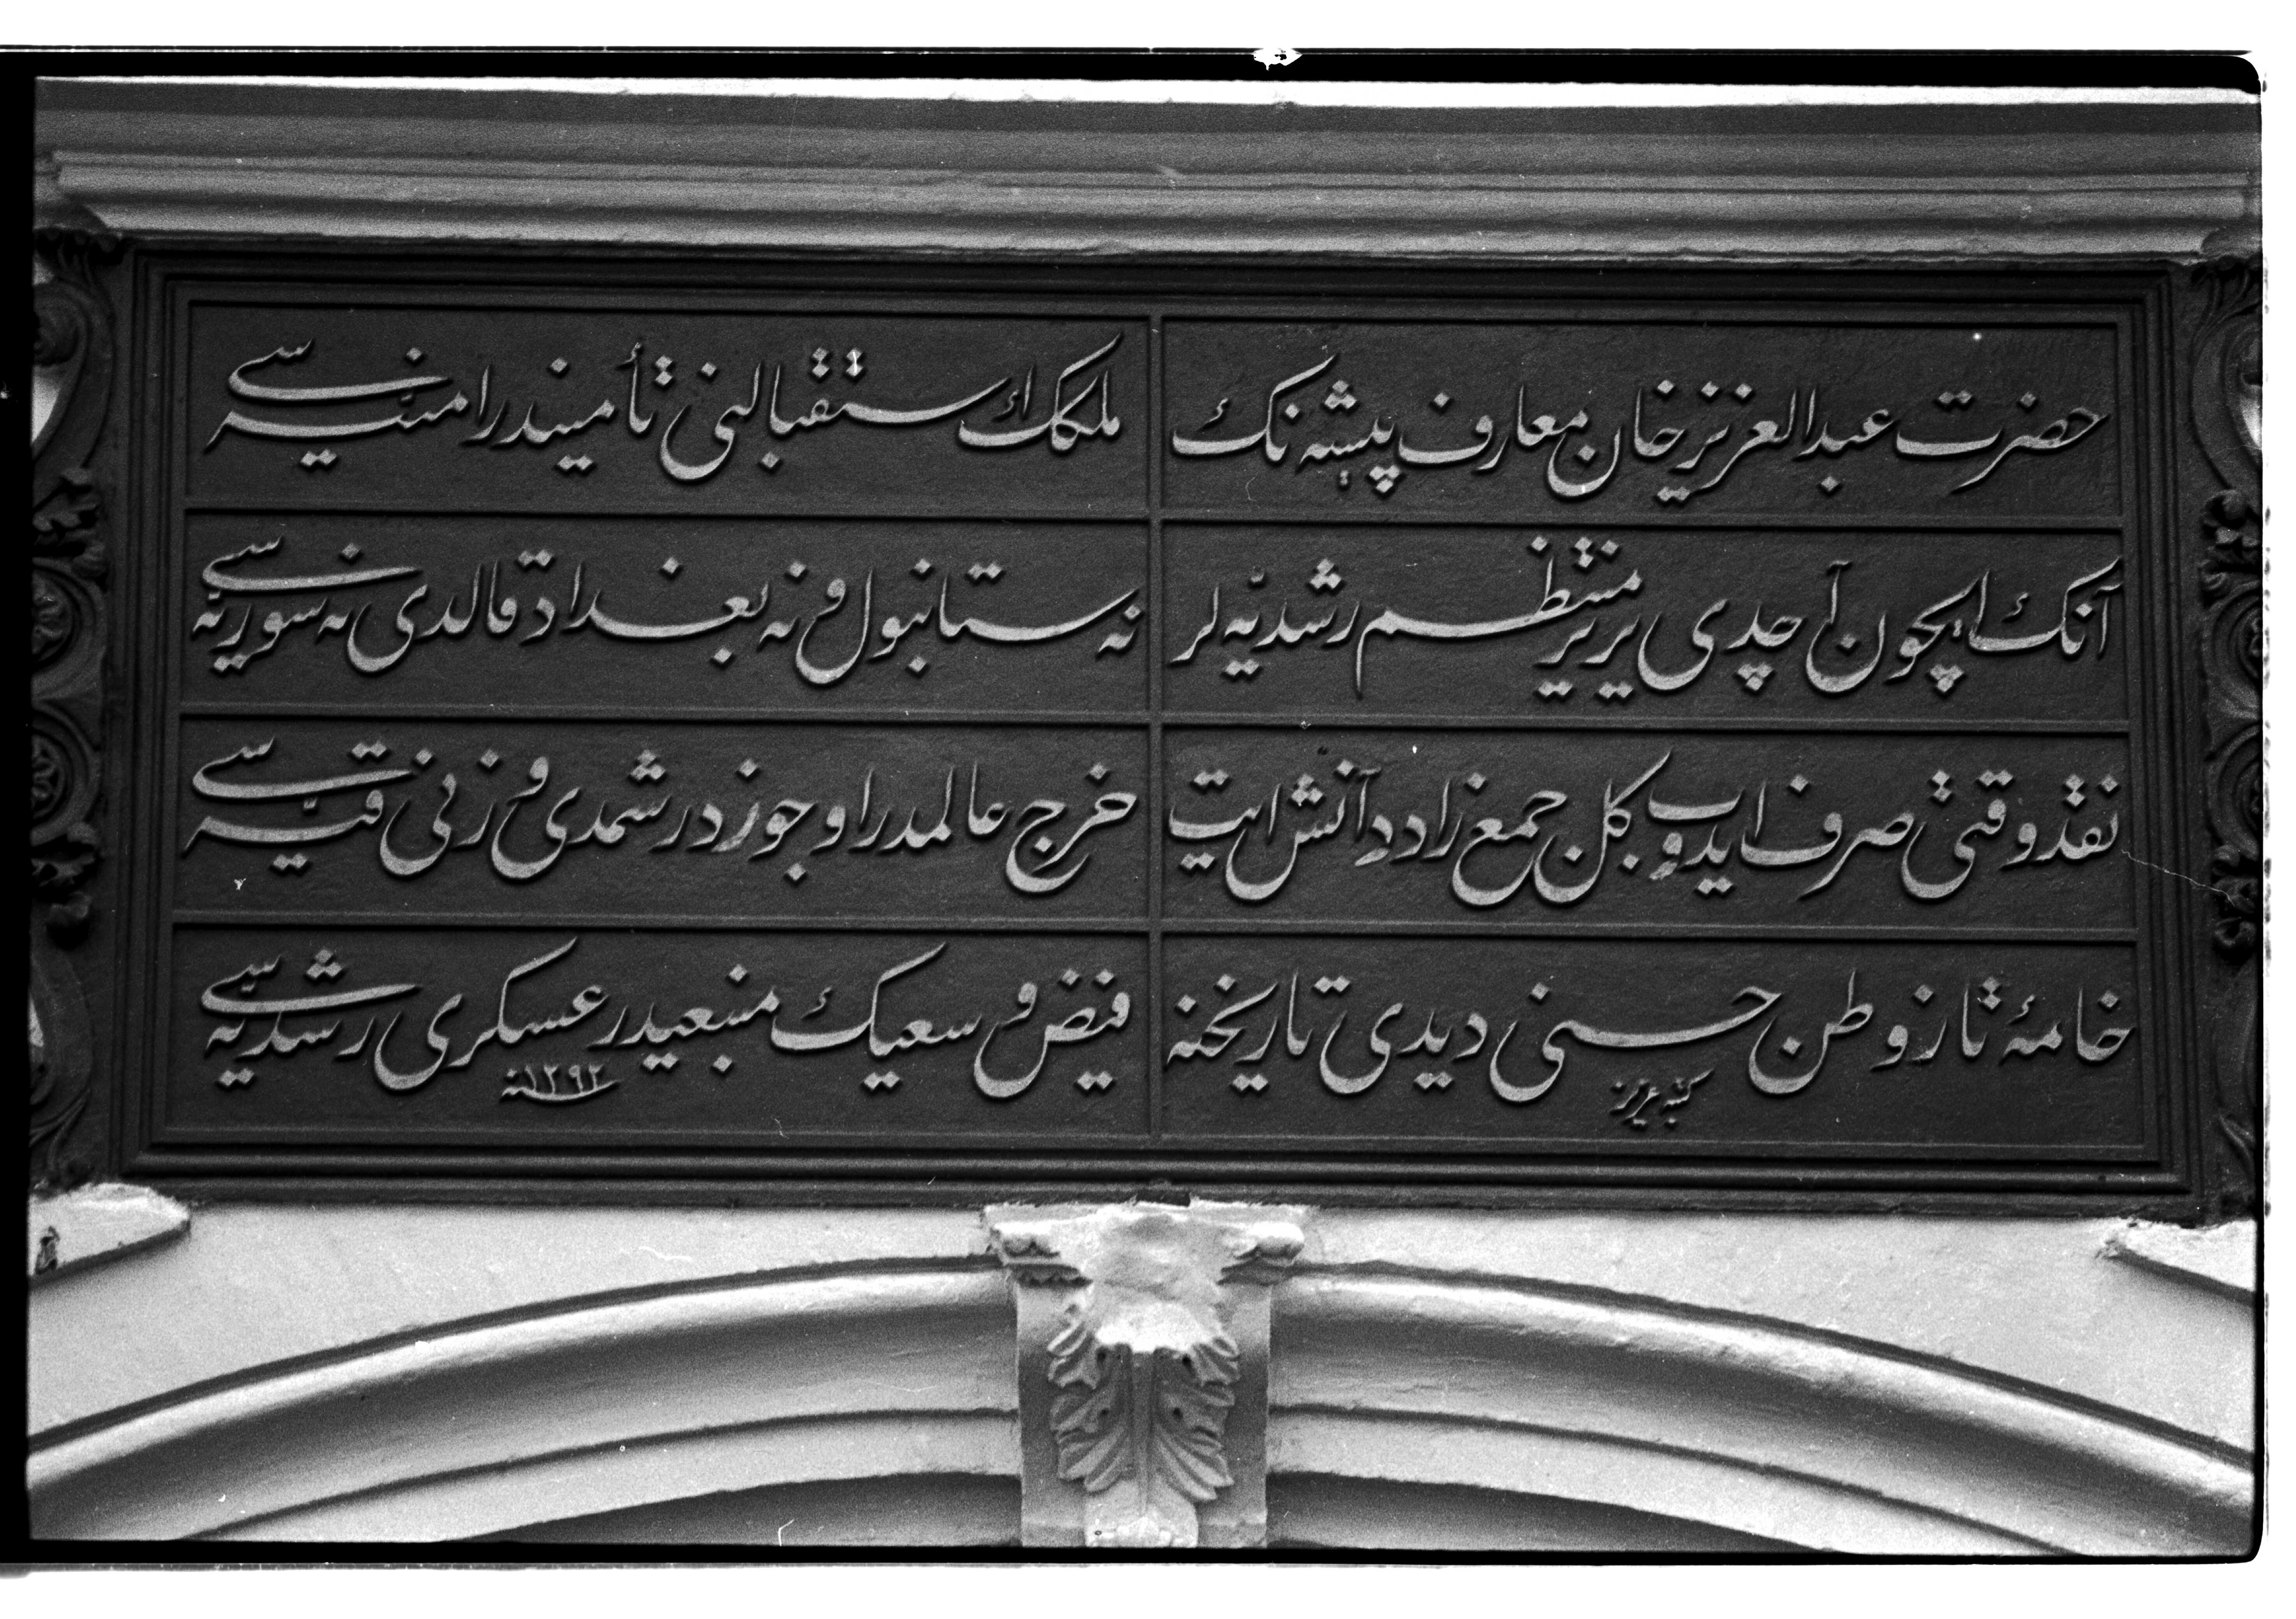 حضرت عبدالعزیز خان معارف پیشه‌نڭ
ملکڭ استقبالنی تأمیندر امنیه‌سی
آنڭ ایچون آچدی یر یر منتظم رشدیّه‌لر
نه ستانبول و نه بغداد قالدی نه سوریه‌سی
نقد وقتی صرف ایدوب کل جمع زاد دانش ایت
خرج عالمدر اوجوزدر شمدی و زنی قیه‌سی
خامهٔ تازو طن حسنی دیدی تاریخنه
فیض و سعیڭ منبعیدر عسکری رشدیه‌سی
کتبه عزیز
سنه ١٢٩٢